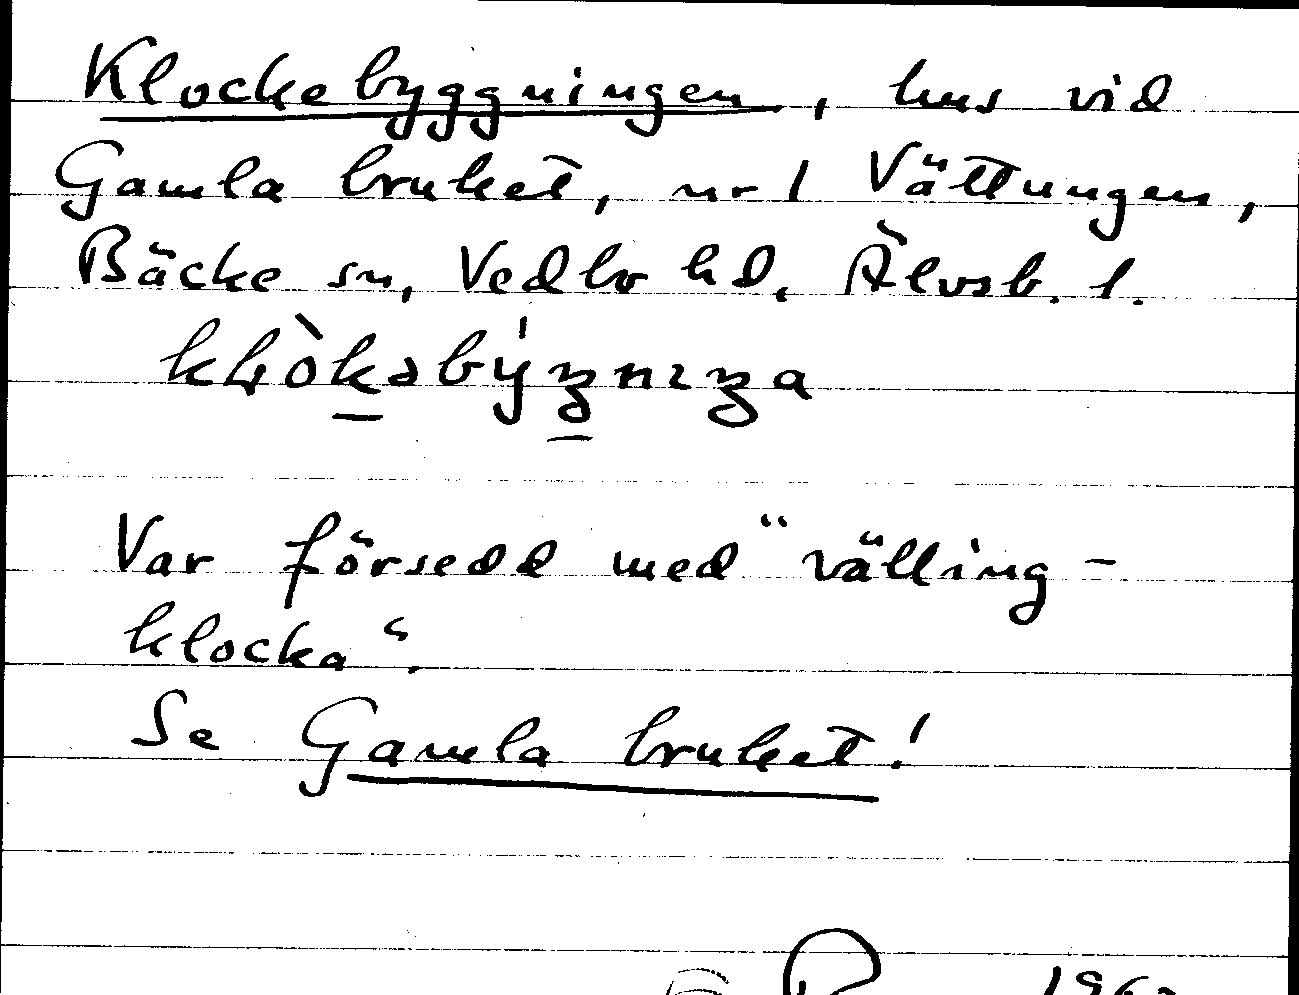 Klockebyggningen, hus vid
Gamla bruket, nr 1 Vättungen,
Bäcke sn, Vedbo hd, Älvsb. l.
Var försedd med "välling-
klocka".
Se Gamla bruket!